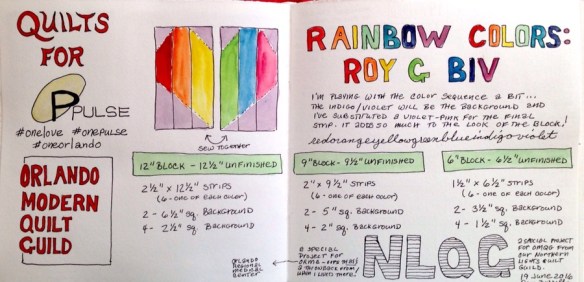 QUILTS
FOR
P PULSE
#onelove #onepulse
#oneorlando
ORLANDO
MODERN
QUILT
GUILD
SEW TOGETHER
12" BLOCK - 12½" UNFINISHED
2½" x 12½" STRIPS
(6 - ONE OF EACH COLOR)
2 - 6½" SQ. BACKGROUND
4 - 2½" SQ. BACKGROUND
ORLANDO
REGIONAL
MEDICAL
CENTER
RAINBOW COLORS:
ROY G BIV
I'M PLAYING WITH THE COLOR SEQUENCE A BIT...
THE INDIGO/VIOLET WILL BE THE BACKGROUND AND
I'VE SUBSTITUTED A VIOLET-PINK FOR THE FINAL
STRIP. IT ADDS SO MUCH TO THE LOOK OF THE BLOCK!
redorangeyellowgreenblueindigoviolet
9" BLOCK - 9½" UNFINISHED
2" x 9½" STRIPS
(6 - ONE OF EACH COLOR)
2 - 5" SQ. BACKGROUND
4 - 2" SQ. BACKGROUND
6" BLOCK - 6½" UNFINISHED
1½" x 6½" STRIPS
(6 - ONE OF EACH COLOR)
2 - 3½" SQ. BACKGROUND
4 - 1½" SQ. BACKGROUND
A SPECIAL
PROJECT FOR
NLQG
A SPECIAL PROJECT
FOR OMQG FROM
OUR NORTHERN
LIGHTS QUILT
GUILD.
19 JUNE 2016